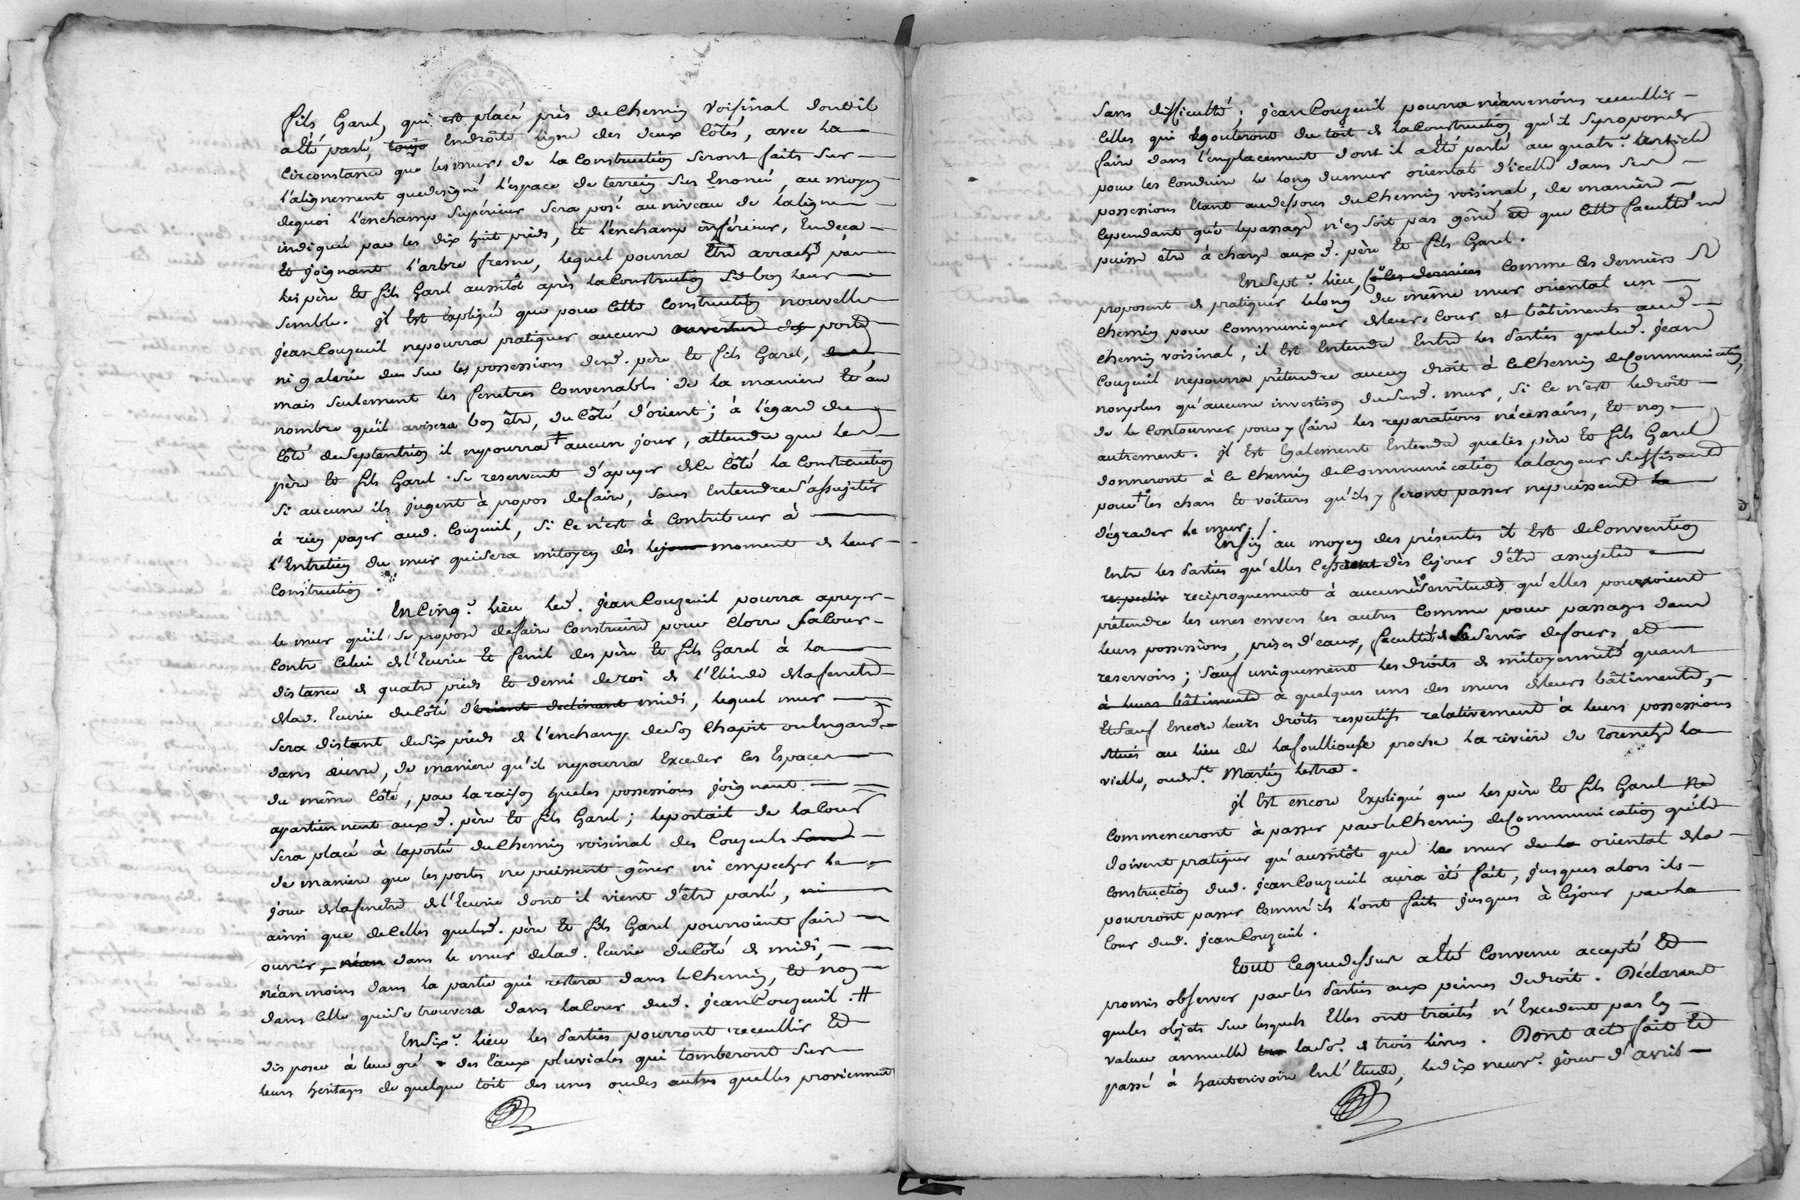 fils Garel, qui est placé près du Chemin voisinal dont il
a été parlé, toujo En droite ligne des deux Côtés, avec la
Circonstance que les murs de la Construction seront faits sur
l'alignement que designe l'espace de terrein sus Enoncé, au moyen
dequoi l'enchamp supérieur sera posé au niveau de la ligne
indiqué par les dix huit pieds, et l'enchamp inférieur, Endeça
Et joignant l'arbre fresne, lequel pourra Être arraché par
les père et fils Garel aussitôt après la Construction si bon leur
semble. il Est Expliqué que pour Cette Construction nouvelle
jean Couzeuil ne pourra pratiquer aucune ouverture de porte
ni galerie sur les possessions desd. père et fils Garel,
mais seulement les fenetres Convenables de la maniere Et au
nombre qu'il avisera bon être, du Côté d'orient; à l'égard du
Côté du septentrion il ne pourra aucun jour, attendu que les
père et fils Garel se reservent d'apuyer de Ce Côté la Construction
si aucune ils jugent à propos de faire, sans Entendre s'assujetir
à rien payer aud. Couzeuil, si Ce n'est à Contribuer à
l'Entretien du mur qui sera mitoyen dès le jour moment de leur
Construction.
En Cinq.e lieu led. jean Couzeuil pourra apuyer
le mur qu'il se propose de faire Construire pour Clorre sa Cour
Contre Celui de l'Ecurie Et fenil des père et fils Garel à la
distance de quatre pieds et demi de roi de la fenetre
de lad. Ecurie du Côté d'orient declinant midi, lequel mur
sera distant de six pieds de l'enchamp de son Chapit ou hangard
dans œuvre, de maniere qu'il ne pourra Exceder Ces Espaces
du même Côté, par la raison que les possessions joignant
apartiennent auxd. père et fils Garel; le portail de la Cour
sera placé à la porté du Chemin voisinal des Couzeuil
de maniere que les portes ne puissent gêner ni empecher le
jour de la fenetre de l'Ecurie dont il vient d'être parlé, ni
ainsi que de Celles que lesd. père et fils Garel pourroient faire
ouvrir, néan dans le mur de lad. Ecurie du Côté de midi,
néanmoins dans la partie qui restera dans le Chemin, Et non
dans Celle qui se trouvera dans la Cour dud. jean Couzeuil. #
En six.e lieu les parties pourront recueillir Et
disposer à leur gré des Eaux pluviales qui tomberont sur
leurs heritages de quelque toit des unes ou des autres quelles proviennent
sans difficulté; jean Couzeuil pourra néanmoins recueillir
Celles qui Egouteront du toit de la Construction qu'il se propose de
faire dans l'emplacement dont il a été parlé au quatr.e article
pour les Conduire le long du mur oriental d'icelle dans ses
possessions Etant au dessous du Chemin voisinal, de maniere
Cependant que le passage n'en soit pas gêné et que Cette faculté ne
puisse être à charge auxd. père Et fils Garel.
En sept.e lieu, Comme Ces derniers se
proposent de pratiquer le long du même mur oriental un
Chemin pour Communiquer de leurs Cour et bâtiments aud.
Chemin voisinal, il Est Entendu Entre les parties que led. jean
Couzeuil ne pourra prétendre aucun droit à Ce Chemin de Communication,
non plus qu'aucune investison dud. mur, si Ce n'est le droit
de le Contourner pour y faire les reparations nécessaires, Et non
autrement. il Est Egalement Entendu que les père et fils Garel
donneront à Ce Chemin de Communication la largeur suffisante
pour que les chars Et voitures qu'ils y feront passer ne puissent
dégrader le mur. /.
Enfin au moyen des présentes il Est de Convention
Entre les parties qu'elles Cessent dès Ce jour d'être assujetie
respectiv reciproquement à aucunes servitudes qu'elles pourroient
prétendre les unes envers les autres Comme pour passages dans
leurs possessions, prises d'eaux, faculté de se servir de fours, et
reservoirs; sauf uniquement les droits de mitoyenneté quant
à leurs bâtiments à quelques uns des murs de leurs bâtiments,
Et sauf Encore leurs droits respectifs relativement à leurs possessions
situés au lieu de la foulliouse proche la riviere de torenche la
vielle, oud.t Martin lestra.
il Est encore Expliqué que les père Et fils Garel Ne
Commenceront à passer par le Chemin de Communication qu'ils
doivent pratiquer qu'aussitôt que le mur oriental de la
Construction dud. jean Couzeuil aura été fait, jusques alors ils
pourront passer Comm'ils l'ont fait jusques à Ce jour par la
Cour dud. jean Couzeuil.
tout Ce que dessus a Été Convenu accepté Et
promis observer par les parties aux peines de droit. Déclarant
que les objets sur lesquels Elles ont traités n'Excedent pas En
valeur annuelle la So.e de trois livres. Dont acte fait Et
passé à hauterivoire En l'Etude, le dix neuv.e jour d'avril